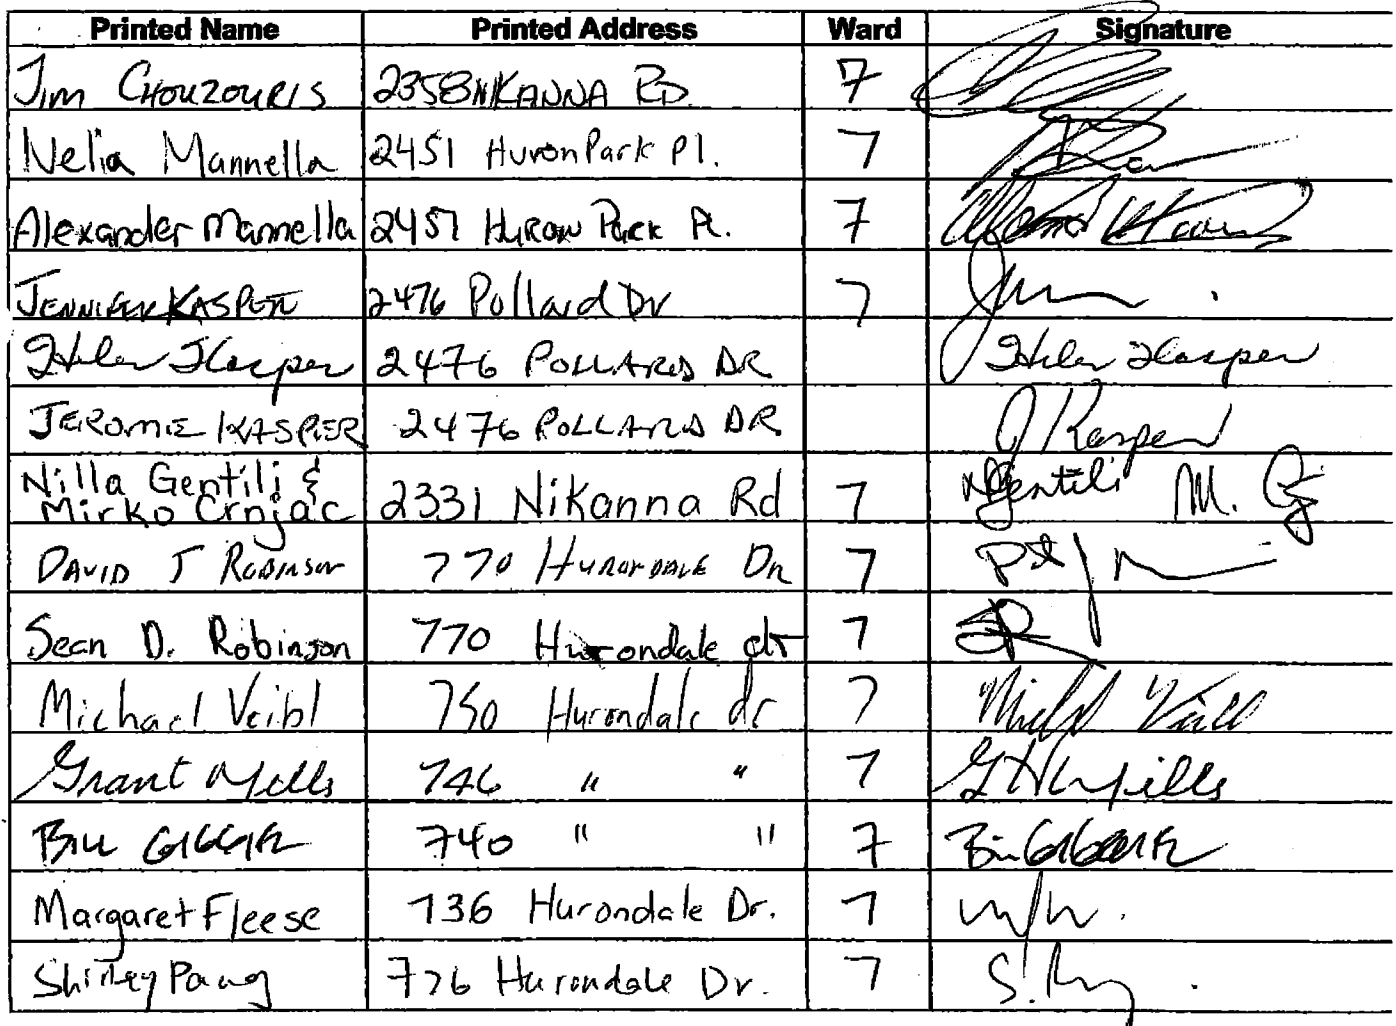 Printed Name Printed Address Ward Signature
Jim CHOUZOURIS 2358 NIKANNA RD. 7
Nelia Mannella 2451 Huron Park Pl. 7
Alexander Mannella 2451 HURON PARK PL. 7
JENNIFER KASPER 2476 Pollard Dr 7
Helen Kasper 2476 POLLARD DR Helen Kasper
JEROME KASPER 2476 POLLARD DR J Kasper
Nilla Gentili &
Mirko Crnjac 2331 Nikanna Rd 7 NGentili M.
DAVID J ROBINSON 770 HURONDALE DR 7
Sean D. Robinson 770 Hurondale dr 7
Michael Veibl 750 Hurondale dr 7
Grant Mills 746 " " 7 G H Mills
BILL 740 " " 7
Margaret Fleese 736 Hurondale Dr. 7
Shirley Pang 776 Hurondale Dr. 7